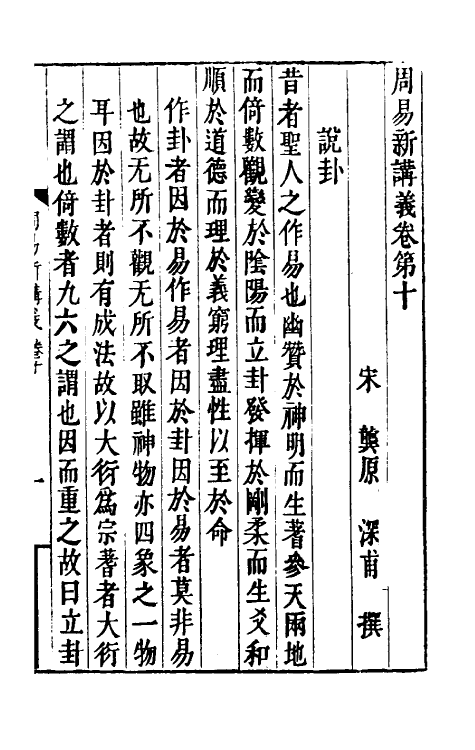 周易新講義卷第十
宋 龔原 深甫 撰
說卦
昔者聖人之作易也幽贊於神明而生蓍參天兩地
而倚數觀變於陰陽而立卦發揮於剛柔而生爻和
順於道德而理於義窮理盡性以至於命
作卦者因於易作易者因於卦因於易者莫非易
也故无所不觀无所不取雖神物亦四象之一物
耳因於卦者則有成法故以大衍爲宗蓍者大衍
之謂也倚數者九六之謂也因而重之故曰立卦
周易新講義卷十
一